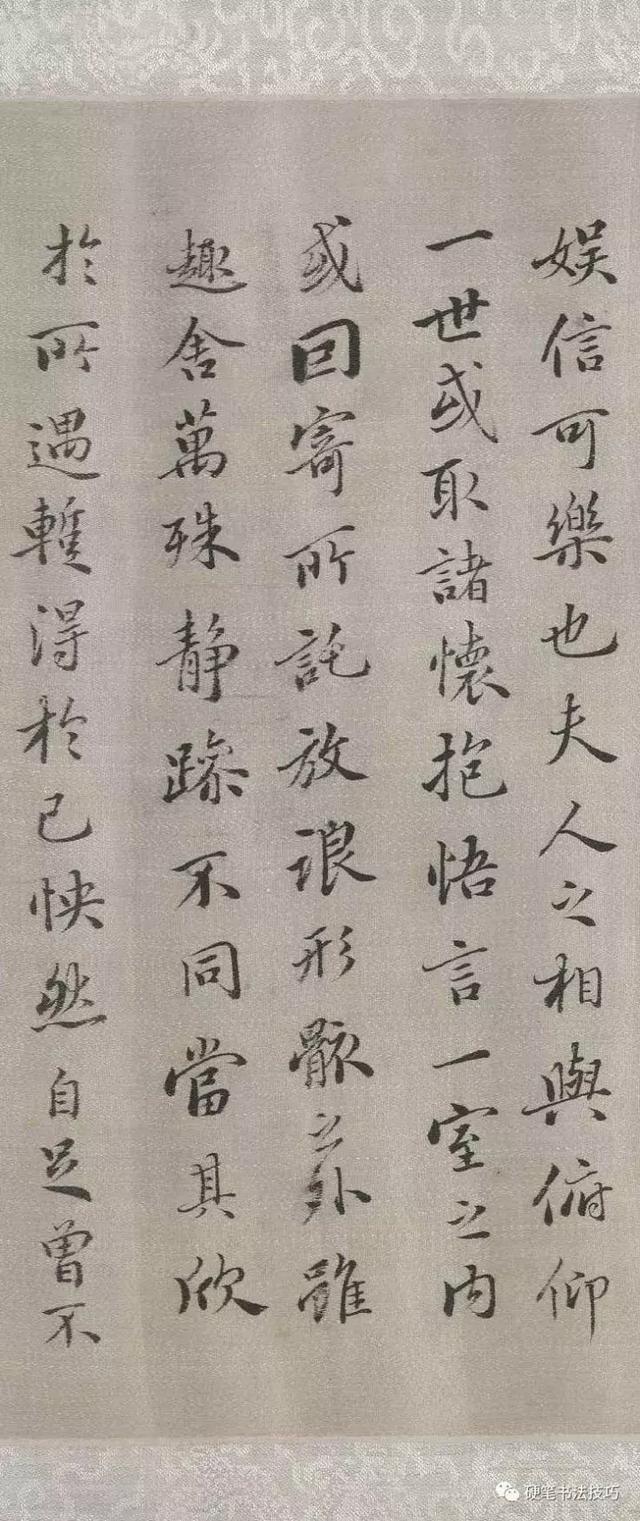 娱信可樂也夫人之相與俯仰
一世或取諸懷抱悟言一室之内
或因寄所託放浪形骸之外雖
趣舍萬殊静躁不同當其欣
於所遇蹔得於己怏然自足曾不
硬笔书法技巧